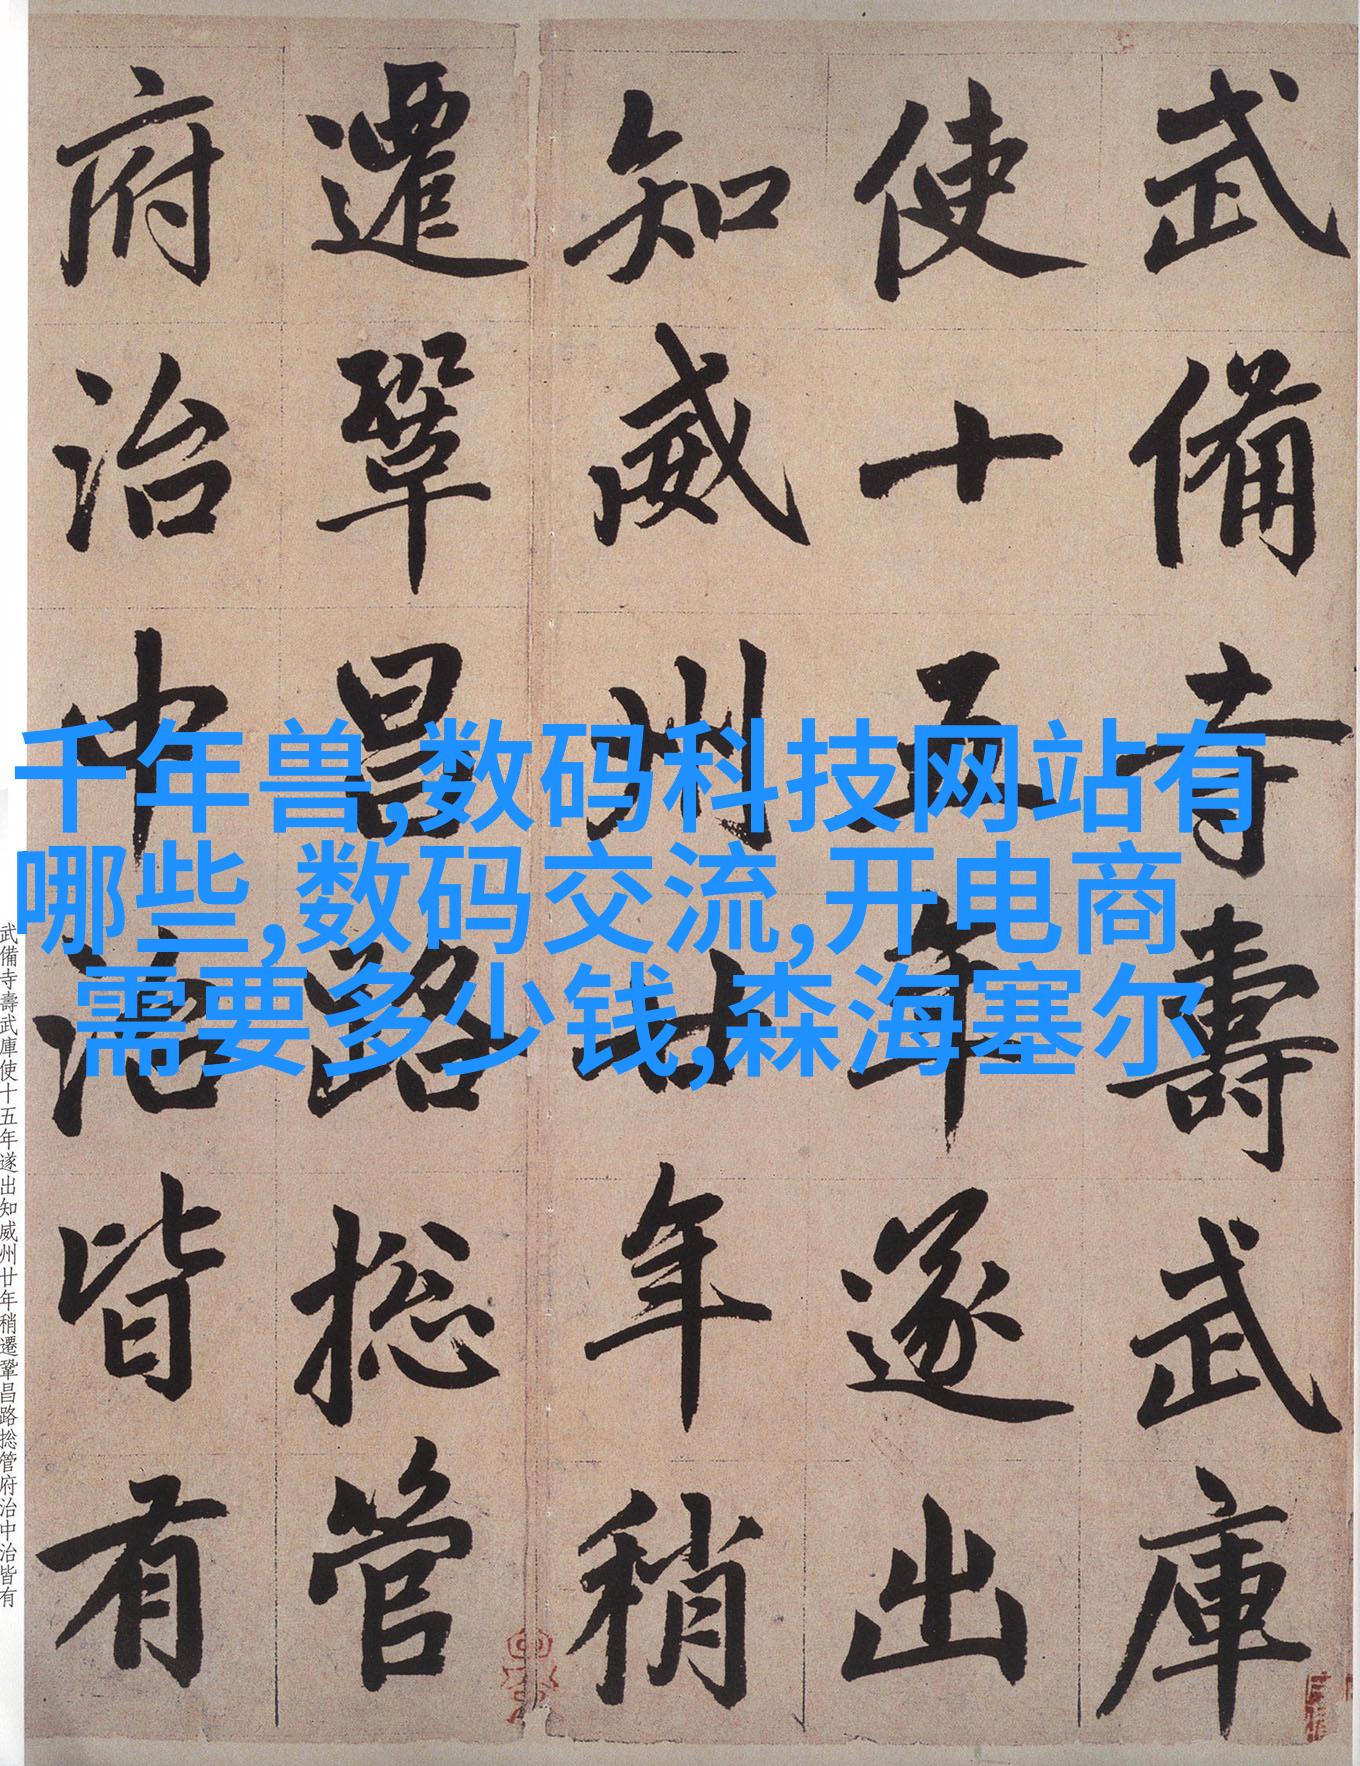 武備寺壽武庫
使十五年遂出
知威州廿年稍
遷鞏昌路捴管
府治中治皆有
千年兽,数码科技网站有
哪些,数码交流,开电商
需要多少钱,森海塞尔
武備寺壽武庫使十五年遂出知威州廿年稍遷鞏昌路捴管府治中治皆有